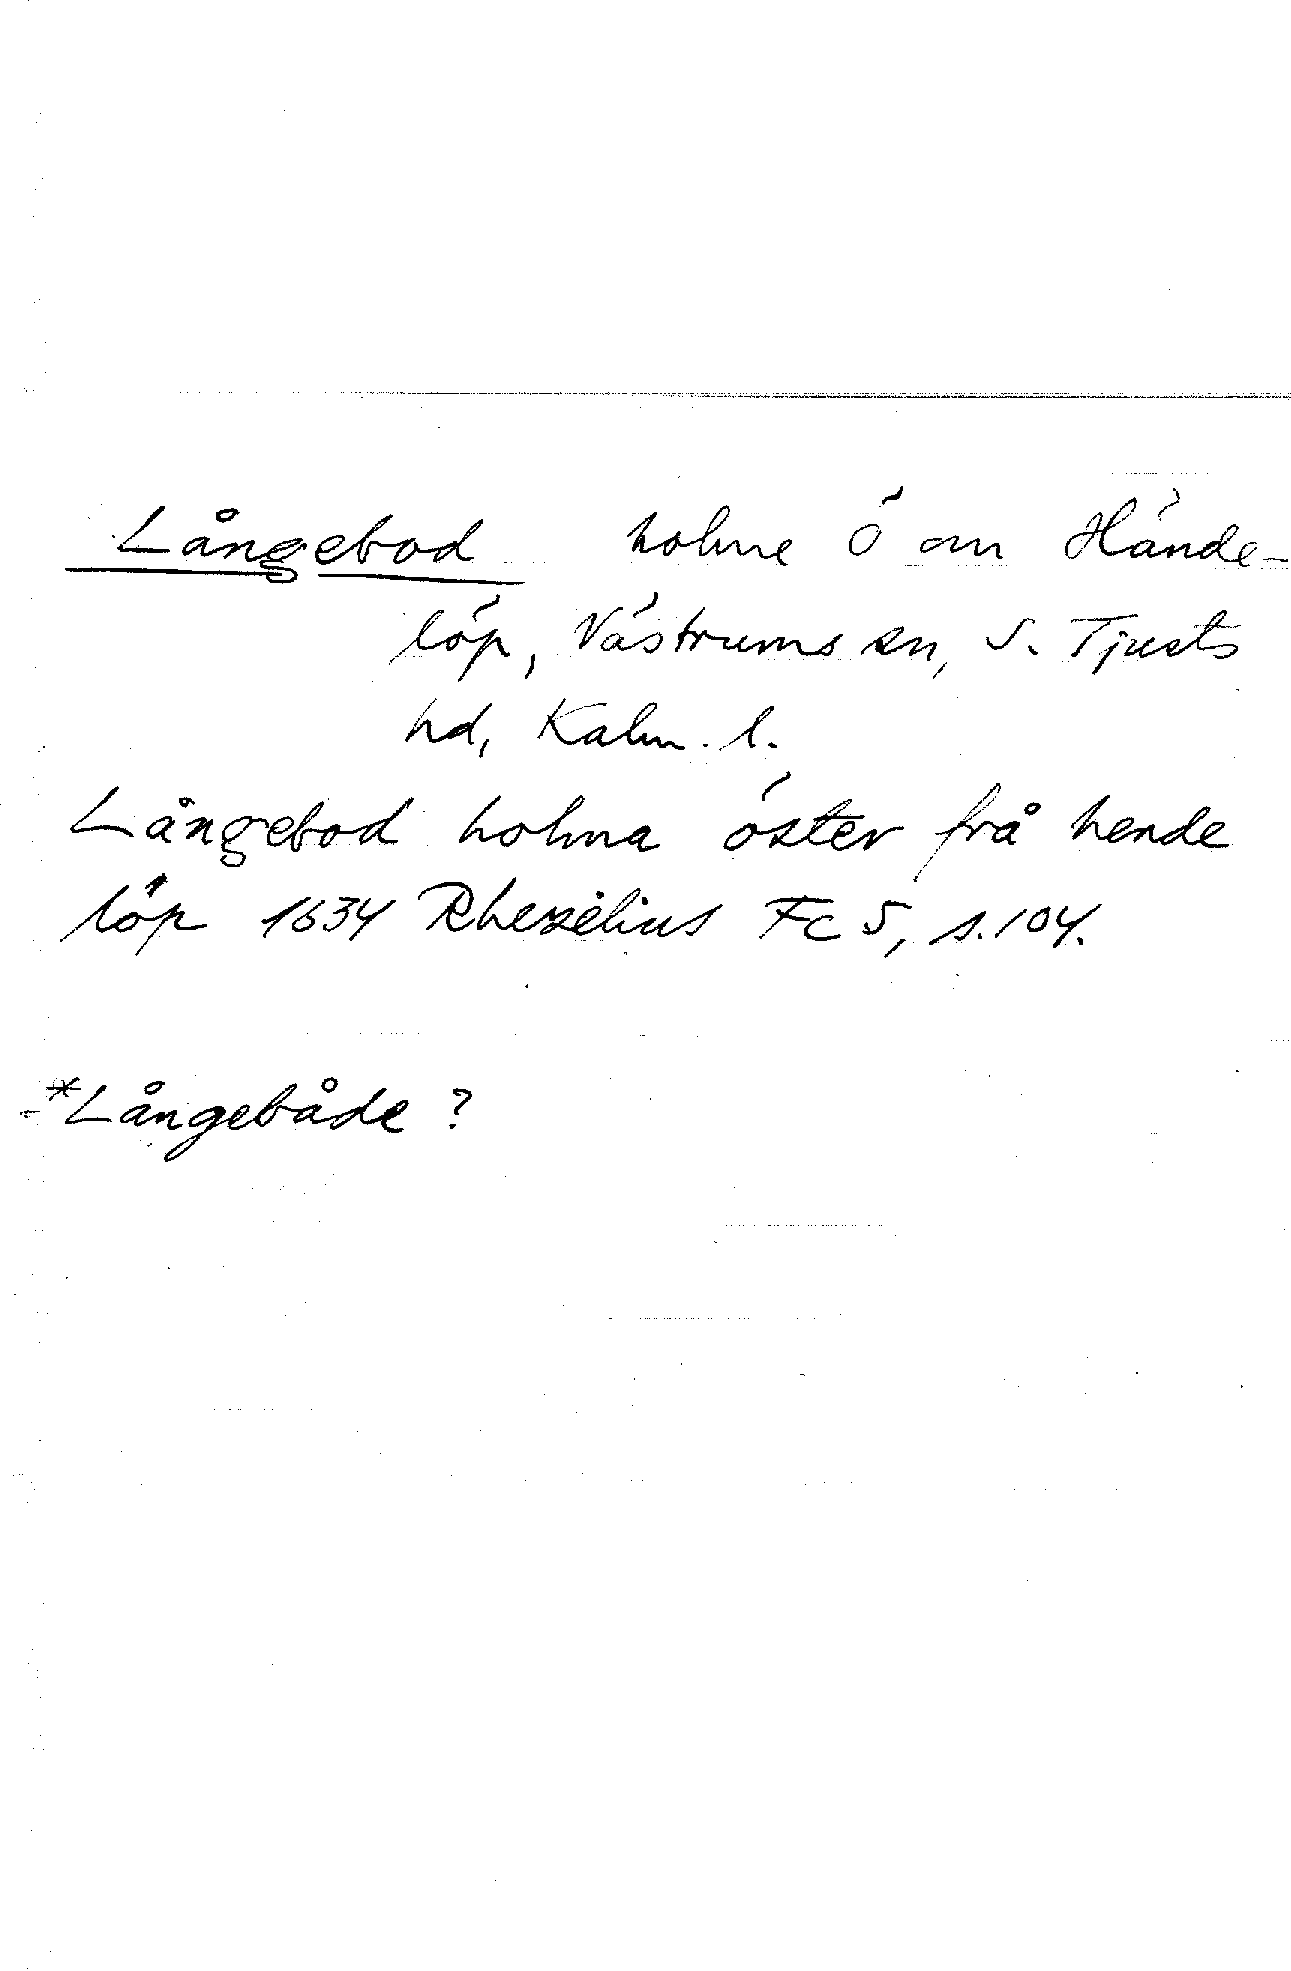 Långebod holme Ö om Hände-
löp, Västrums sn, S. Tjusts
hd, Kalm. l.
Långebod holma öster frå hende
löp 1634 Rhezelius Fc 5, s. 104.
*Långebåde ?